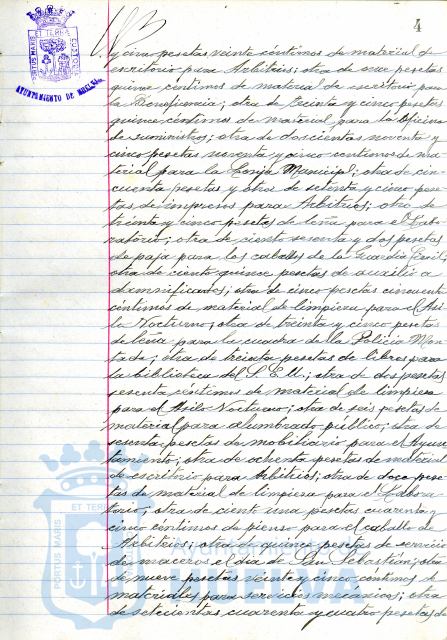 4
PORTUS MARIS ET TERRÆ CUSTODIA
AYUNTAMIENTO DE HUELVA
y cinco pesetas, veinte céntimos de material de
escritorio para Arbitrios; otra de once pesetas
quince céntimos de material de escritorio para
la Beneficencia; otra de treinta y cinco pesetas
quince céntimos de material para la Oficina
de suministros; otra de doscientas noventa y
cinco pesetas noventa y cinco céntimos de ma
terial para la Lonja Municipal; otra de cin
cuenta pesetas y otra de setenta y cinco pese
tas de impresos para Arbitrios; otra de
treinta y cinco pesetas de leña para el Labo
ratorio; otra de ciento sesenta y dos pesetas
de paja para los caballos de la Guardia Civil;
otra de ciento quince pesetas de auxilio a
damnificados; otra de cinco pesetas cincuenta
céntimos de material de limpieza para el Asi
lo Nocturno; otra de treinta y cinco pesetas
de leña para la cuadra de la Policía Mon
tada; otra de treinta pesetas de libros para
la biblioteca del S.E.U.; otra de dos pesetas
sesenta céntimos de material de limpieza
para el Asilo Nocturno; otra de seis pesetas de
material para alumbrado público; otra de
sesenta pesetas de mobiliario para el Ayun
tamiento; otra de ochenta pesetas de material
de escritorio para Arbitrios; otra de doce pese
tas de material de limpieza para el Labora
torio; otra de ciento una pesetas cuarenta y
cinco céntimos de pienso para el caballo de
Arbitrios; otra de quince pesetas de servicio
de maceros el día de San Sebastián; otra
de nueve pesetas veinte y cinco céntimos de
materiales para servicios mecánicos; otra
de setecientas cuarenta y cuatro pesetas de
PORTUS MARIS ET TERRÆ
Ayuntamiento
HUELVA